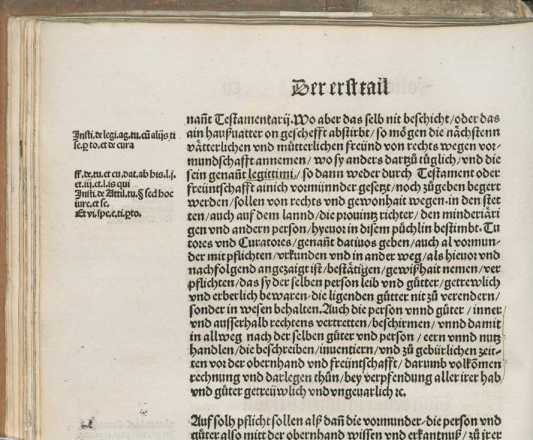 Der erst tail
nañt Testamentarij. Wo aber das selb nit beschicht/oder das
ain haußuatter on geschefft abstirbt/so mögen die nächstenn
vätterlichen vnd mütterlichen freünd von rechts wegen vor-
mundschafft annemen/wo sy anders dartzů tüglich/vnd die
sein genañt legittimi/so dann weder durch Testament oder
freüntschafft ainich vormünnder gesetzt/noch zůgeben begert
werden/sollen von rechts vnd gewonhait wegen in den stet
ten/auch auf dem lannd/die prouintz richter/den minderiäri
gen vnd andern person/hyeuor in disem püchlin bestimbt. Tu
tores vnd Curatores/genañt datiuos geben/auch al vormun-
der mit pflichten/vrkunden vnd in ander weg/als hieuor vnd
nachfolgend angezaigt ist/bestätigen/gewißhait nemen/ver
pflichten/das sy der selben person leib vnd gütter/getrewlich
vnd erberlich bewaren/die ligenden gütter nit zů verendern/
sonder in wesen behalten. Auch die person vnnd gütter/inner
vnd ausserhalb rechtens vertretten/beschirmen/vnnd damit
in allweg nach der selben gütter vnd person/eern vnnd nutz
handlen/die beschreiben/inuentiern/vnd zů gebürlichen zeit-
ten vor der obernhand vnd freüntschafft/darumb volkōmen
rechnung vnd darlegen thůn/bey verpfendung aller irer hab
vnd gütter getreüwlich vnd vngeuarlich ꝛc.
Auf solh pflicht sollen alß dañ die vormunder/die person vnd
güter also mitt der obernhand wissen vnd erkantnuß/zů irer
Insti. de legi. ag. tu. cū alijs ti
se. ꝓ to. et de cura
ff. de. tu. et cu. dat. ab his. l. j.
et. iij. et. l. is qui
Insti. de Attil. tu. § sed hoc
iure. et se.
Et vi. spe. c. ti. ꝓto.